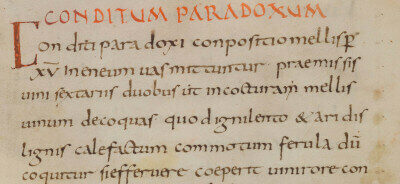 CONDITUM PARADOXUM
Conditi paradoxi conpositio mellis p
XV in eneum uas mittuntur praemissis
uini sextariis duobus ut in cocturam mellis
uinum decoquas quod igni lento & aridis
lignis calefactum commotum ferula dū
coquitur si efferuere coeperit uini rore con